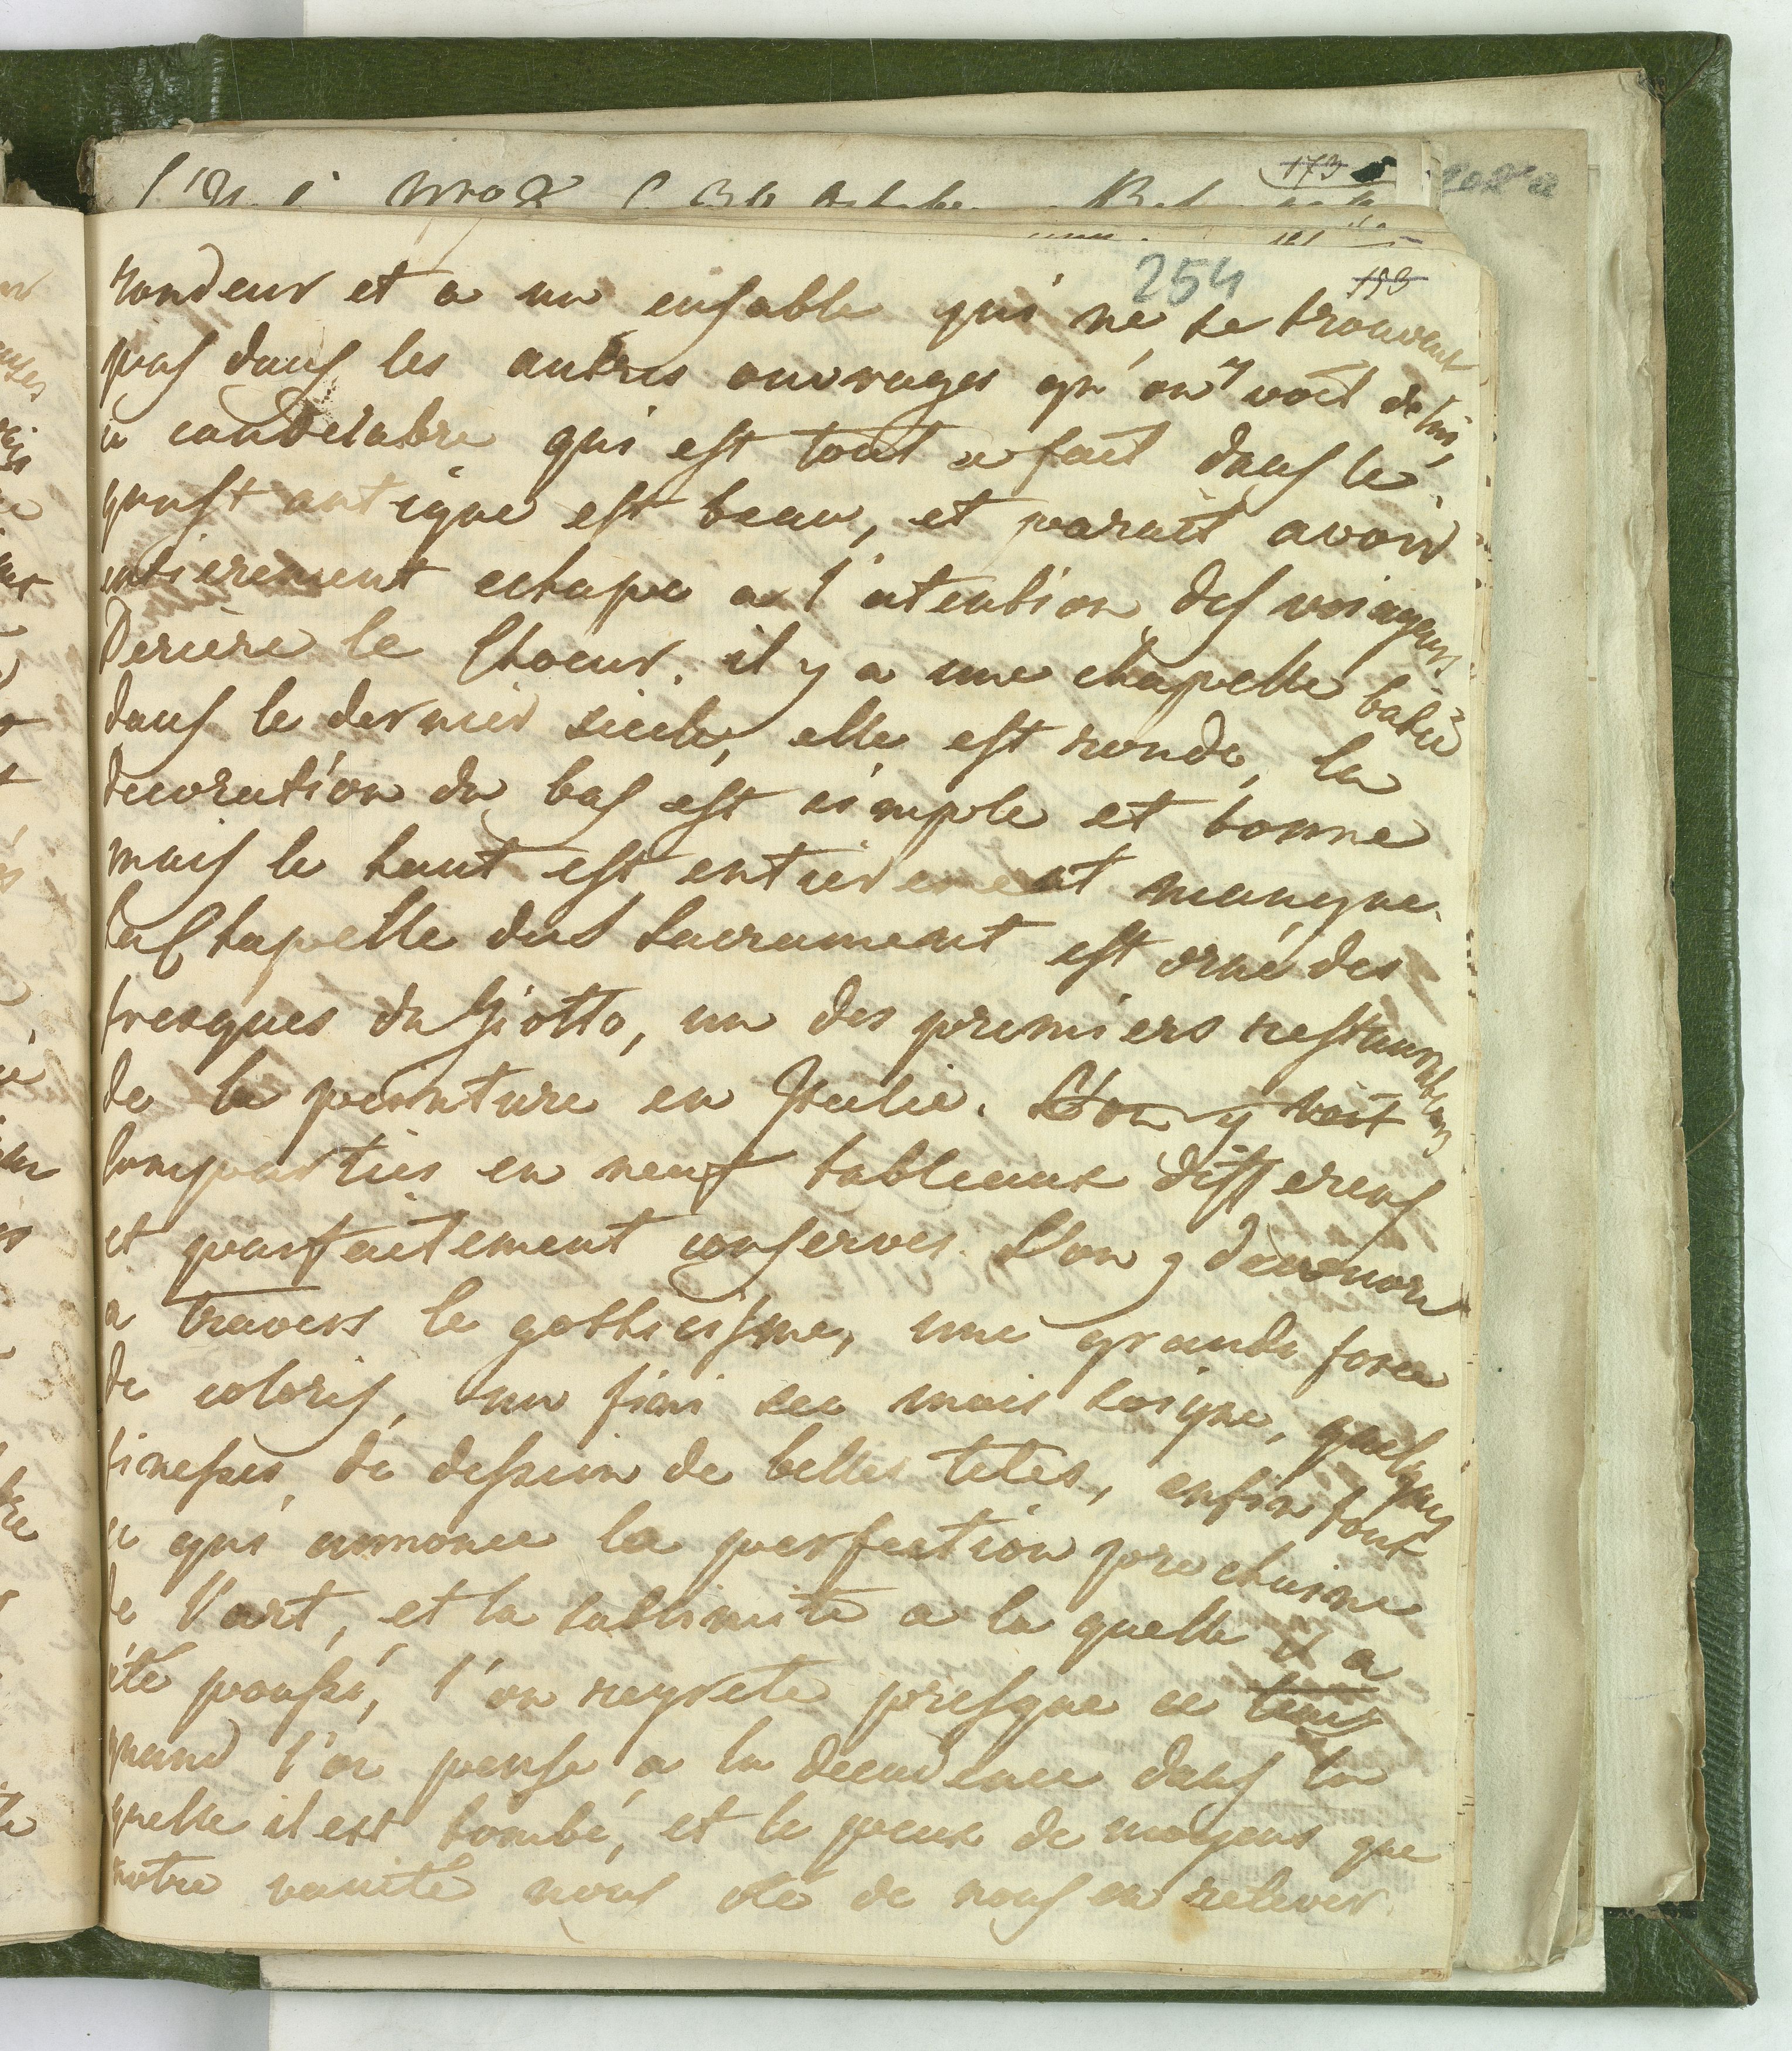 173
202a
254
193
rondeur et a un ensable qui ne se trouvent
pas dans les autres ouvrages qu'on y voit de lui,
ce candelabre qui est tout a fait dans le
goust antique est beau, et parait avoir
entierement echape a l'atention des voiageurs.
Deriere le Choeur, il y a une chapelle batie
dans le dernier siecle, elle est ronde, la
decoration du bas est simple et bonne
mais le haut est entierement manque.
la Chapelle du S Sacrament est orné des
fresques du Giotto, un des premiers restaurateurs
de la peinture en Italie. L'on y voit
comparties en neuf tableaux differens
et parfaitement conserves. L'on y
a travers le gotticisme, une grande force
de coloris, un fini sec mais soigne, quelques
finesses de dessein de belles tetes, enfin tout
ce qui annonce la perfection prochaine
de l'art, et la sublimite a la quelle il a
été poussé, l'on regrete presque ce tems
quand l'on pense a la decadence dans la
quelle il est tombé, et le peux de moyens que
notre vanité nous ote de nous en relever.